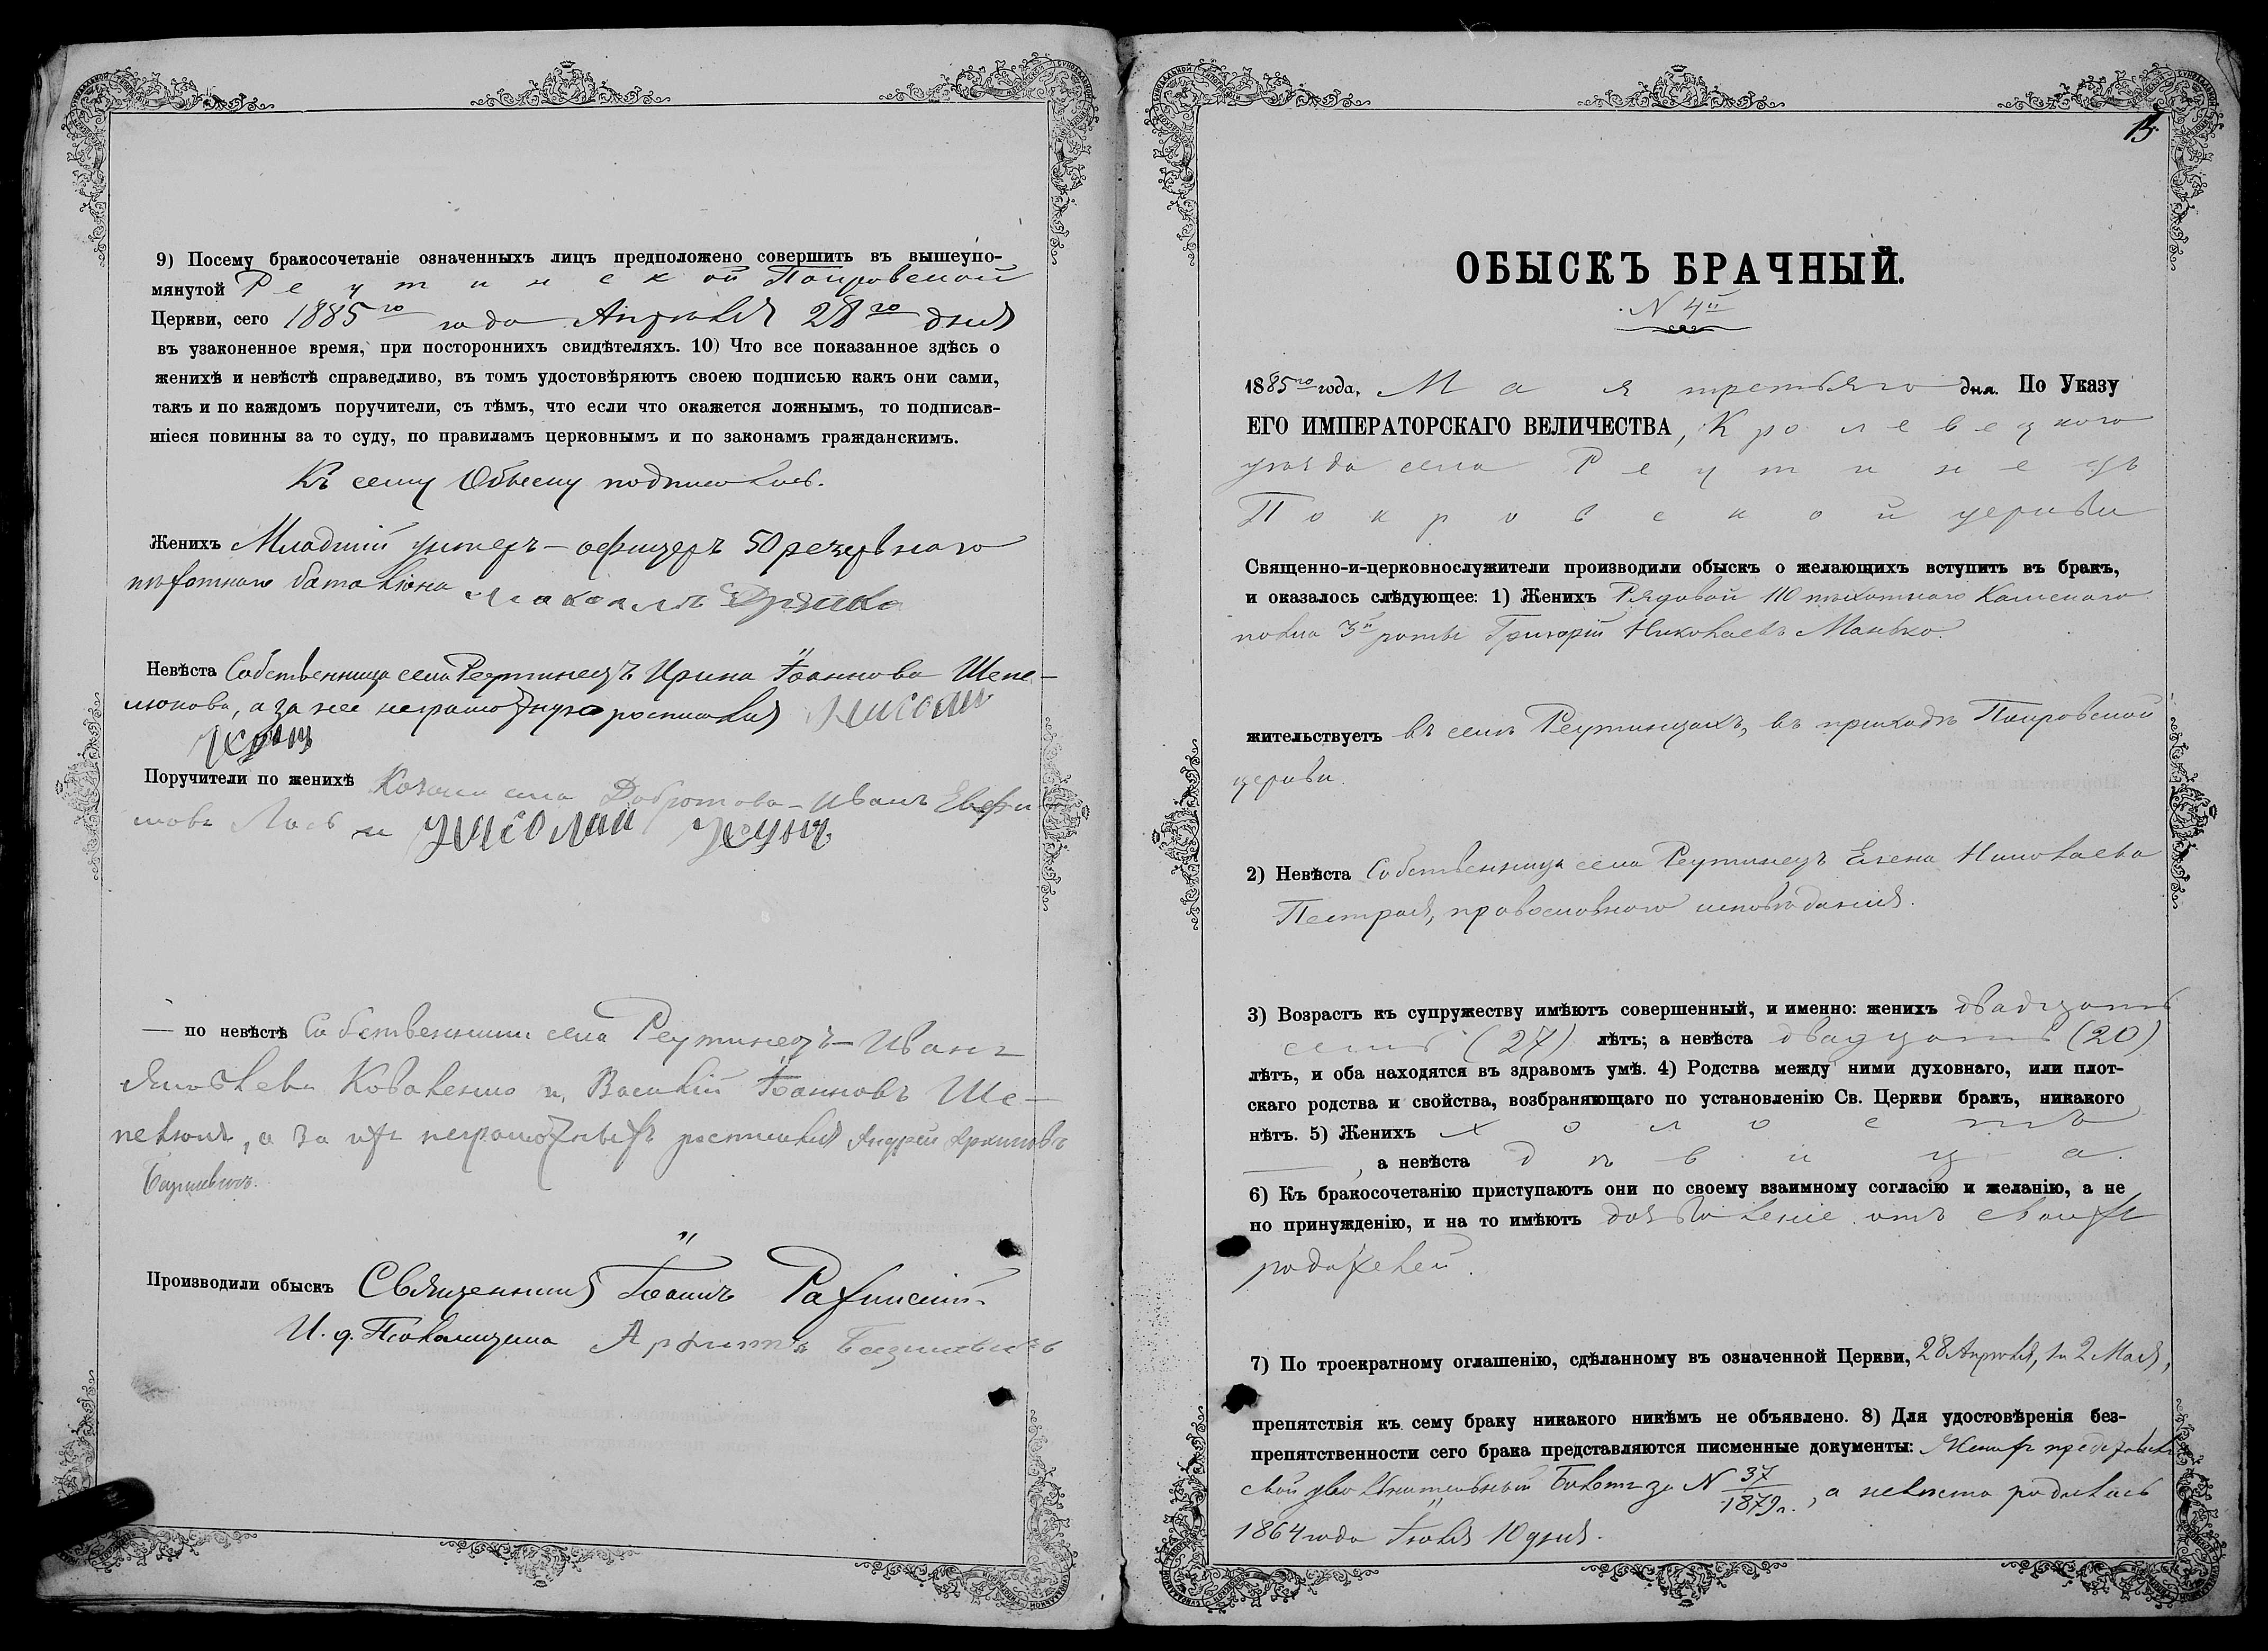 9) Посему бракосочетаніе означенныхъ лицъ предположено совершить въ вышеупо-
мянутой Реутинской Покровской
Церкви, сего 1885го года Апрѣля 28го дня
въ узаконенное время, при постороннихъ свидѣтеляхъ. 10) Что все показанное здѣсь о
женихѣ и невѣстѣ справедливо, въ томъ удостовѣряютъ своею подписью какъ они сами,
такъ и по каждомъ поручители, съ тѣмъ, что если что окажется ложнымъ, то подписав-
шіеся повинны за то суду, по правиламъ церковнымъ и по законамъ гражданскимъ.
Къ сему Обыску подписались.
Женихъ Младшій унтеръ-офицеръ 50 резервнаго
пѣхотнаго баталіона
Невѣста Собственница села Реутинецъ Ирина Іоаннова Шепе-
люкова, а за нее неграмотную росписался Николай
Жунъ
Поручители по женихѣ Козаки села Добротова - Иванъ Евфи
мовъ Лось и Николай Жунъ
— по невѣстѣ Собственники села Реутинецъ - Иванъ
Яковлевъ Коваленко и Василій Іоанновъ Ше-
пелюкъ, а за ихъ неграмотныхъ росписался Андрей Архиповъ
Базилевичъ.
Производили обыскъ Священникъ Іоаннъ
И. д. Псаломщика Базилевичъ
15
ОБЫСКЪ БРАЧНЫЙ.
N 4й
1885го года, Мая третьяго дня. По Указу
ЕГО ИМПЕРАТОРСКАГО ВЕЛИЧЕСТВА, Кролевецкого
уѣзда села Реутинецъ
Покровской церкви
Священно-и-церковнослужители производили обыскъ о желающихъ вступить въ бракъ,
и оказалось слѣдующее: 1) Женихъ Рядовой 110 пѣхотнаго Камскаго
полка 3й роты Григорій Николаевъ Манько.
жительствуетъ въ селѣ Реутинцахъ, въ приходѣ Покровской
церкви.
2) Невѣста Собственница села Реутинецъ Елена Николаева
Пестрая, православнаго исповѣданія.
3) Возрастъ къ супружеству имѣютъ совершенный, и именно: женихъ двадцать
семь (27) лѣтъ; а невѣста двадцать (20)
лѣтъ, и оба находятся въ здравомъ умѣ. 4) Родства между ними духовнаго, или плот-
скаго родства и свойства, возбраняющаго по установленію Св. Церкви бракъ, никакого
нѣтъ. 5) Женихъ холостъ
, а невѣста дѣвица.
6) Къ бракосочетанію приступаютъ они по своему взаимному согласію и желанію, а не
по принужденію, и на то имѣютъ дозволеніе отъ своихъ
родителей.
7) По троекратному оглашенію, сдѣланному въ означенной Церкви, 28 Апрѣля, 1 и 2 Мая,
препятствія къ сему браку никакого никѣмъ не объявлено. 8) Для удостовѣренія без-
препятственности сего брака представляются писменные документы: Женихъ представилъ
свой увольнительный билетъ за N 37/1879г., а невѣста родилась
1864 года Іюля 10 дня.